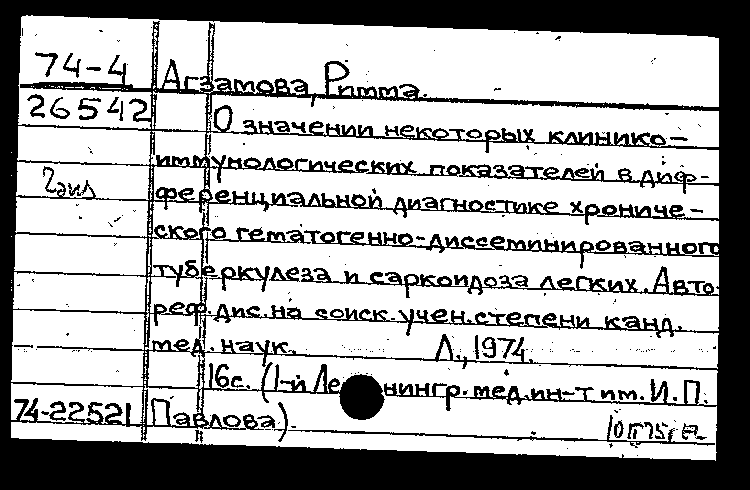 74-4 Агзамова, Римма.
26542 О значении некоторых клинико-
иммунологических показателей в диф-
2 экз
ференциальной диагностике хрониче-
ского гематогенно-диссеминированного
туберкулеза и саркоидоза легких. Авто-
реф. дис. на соиск. учен. степени канд.
мед. наук. Л., 1974.
16с. (1-й Ленингр. мед. ин-т им. И. П.
74-22521 Павлова).